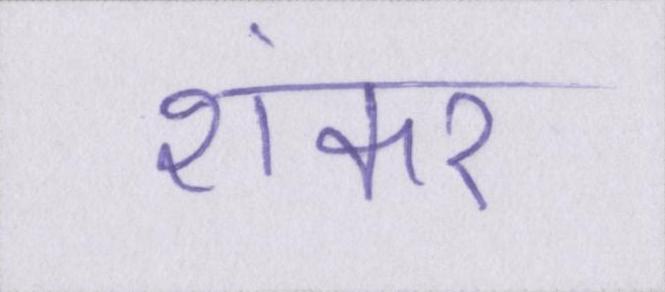 शंकर